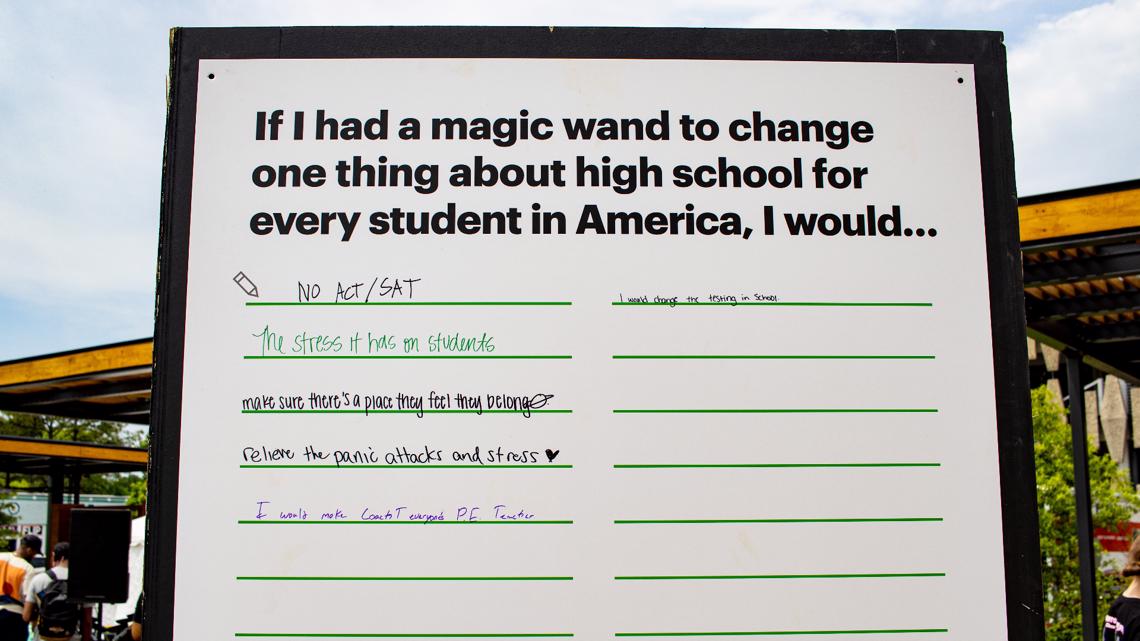 If I had a magic wand to change
one thing about high school for
every student in America, I would...
NO ACT/SAT
The stress it has on students
make sure there's a place they feel they belong
relieve the panic attacks and stress ♥
I would make Coach T everyone's P.E. Teacher
I would change the testing in School.